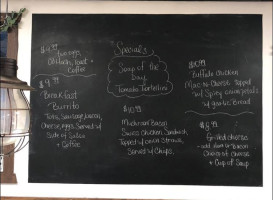 $4.99
Two eggs,
Oatmeal, toast +
Coffee
$9.99
Breakfast
Burrito
Tom, sausage, bacon,
Cheese, eggs Served w/
Side of Salsa
+ Coffee
Specials
Soup of the
Day
Tomato Tortellini
$10.99
Mushroom Bacon
Swiss chicken Sandwich,
Topped w/ onion Straws,
Served w/ Chips.
$10.99
Buffalo chicken
Mac-n-Cheese topped
w/ Spicy onion petals
w/ garlic Bread
$8.99
Grilled cheese
- add ham or bacon
Choice of cheese
+ Cup of Soup